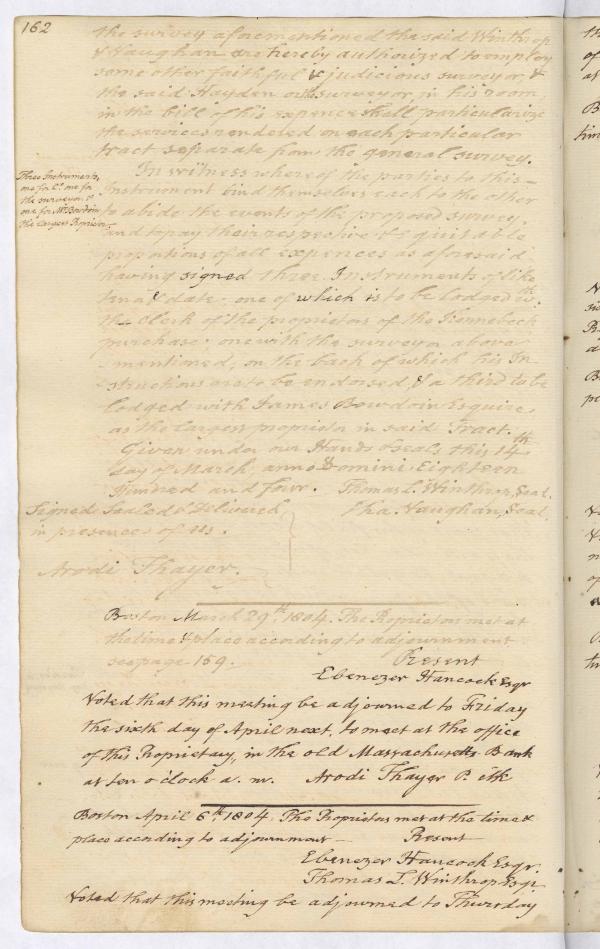 162
the survey aforementioned the said Winthrop
& Vaughan are hereby authorized to employ
some other faithful & judicious surveyor, &
the said Hayden or the surveyor in his room
in the bill of his expence shall particularize
the services rendered on each particular
tract separate from the general survey.
In witness whereof the parties to this
Three Instruments,
one for Cl. one for
the surveyor, &
one for Mr Bowdoin
the largest Proprietor
Instrument bind themselves each to the other
to abide the events of the proposed survey
and to pay their respective & equitable
proportions of all expences as aforesaid
having signed three Instruments of like
tenor & date; one of which is to be lodged wth
the Clerk of the proprietors of the Kennebeck
purchase; one with the surveyor above
mentioned, on the back of which his In
structions are to be endorsed, & a third to be
lodged with James Bowdoin Esquire,
as the largest proprietor in said Tract.
Given under our Hands & seals this 14th
day of March, anno Domini Eighteen
Hundred and four. Thomas L. Winthrop, Seal.
Cha. Vaughan, Seal.
Signed Sealed & Delivered
in presence of us.
Arodi Thayer.
Boston March 29th 1804. The Proprietors met at
the time & place according to adjournment
see page 159. Present
Ebenezer Hancock Esqr
Voted that this meeting be adjourned to Friday
the sixth day of April next, to meet at the office
of this Propriety, in the old Massachusetts Bank
at ten o'clock a. m. Arodi Thayer P. Clk
Boston April 6th 1804. The Proprietors met at the time &
place according to adjournment Present
Ebenezer Hancock Esqr.
Thomas L. Winthrop Esqr.
Voted that this meeting be adjourned to Thursday